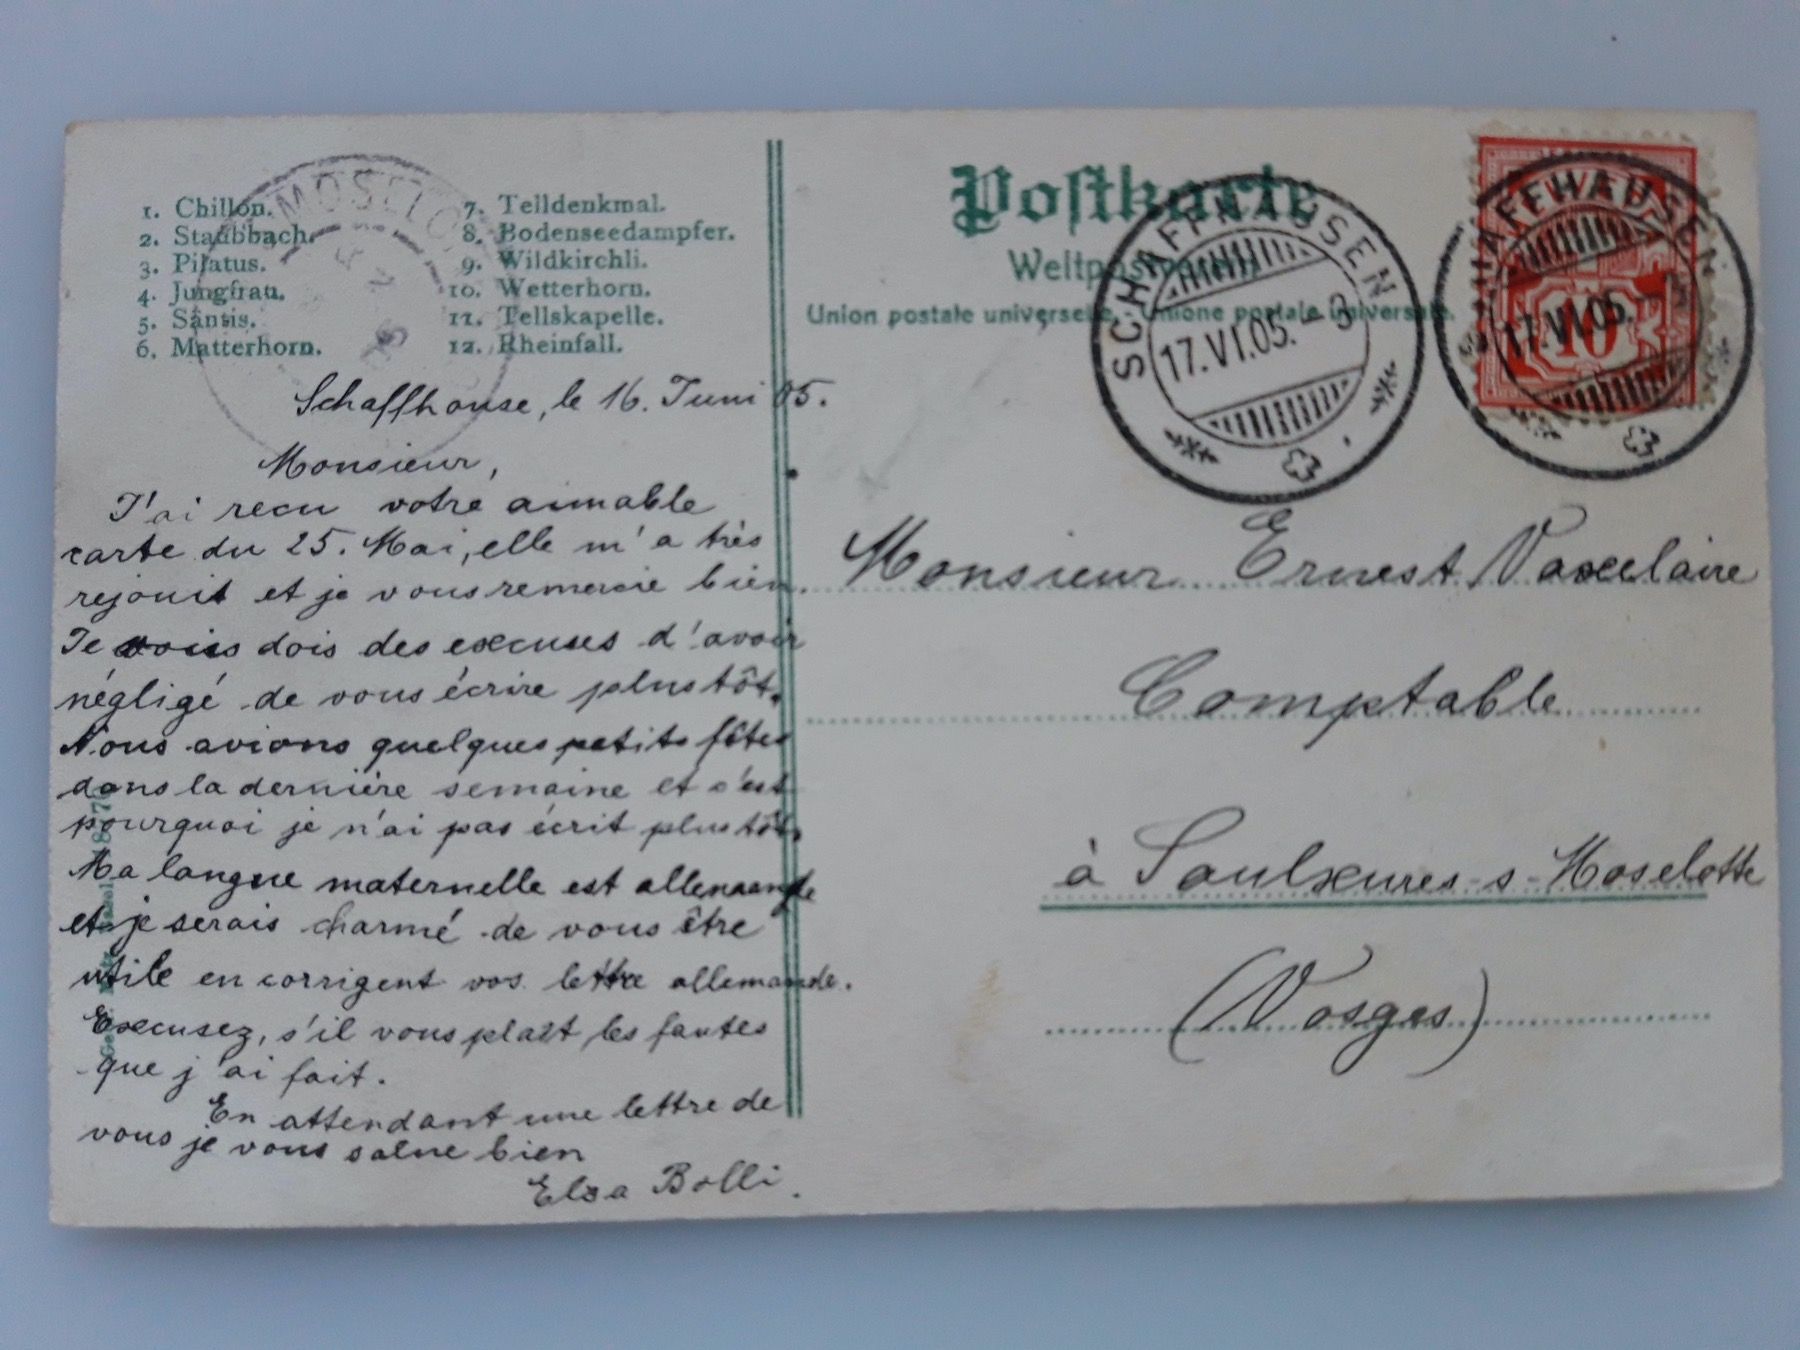 1. Chillon.
2. Staubbach.
3. Pilatus.
4. Jungfrau.
5. Säntis.
6. Matterhorn.
7. Telldenkmal.
8. Bodenseedampfer.
9. Wildkirchli.
10. Wetterhorn.
11. Tellskapelle.
12. Rheinfall.
MOSELO
05
Schaffhouse, le 16. Juni 05.
Monsieur,
J'ai recu votre aimable
carte du 25. Mai, elle m'a très
rejouit et je vous remercie bien.
Je vous dois des excuses d'avoir
négligé de vous écrire plus tôt.
Nous avions quelques petits fêtes
dans la dernière semaine et c'est
pourquoi je n'ai pas écrit plus tôt.
Ma langue maternelle est allemande
et je serais charmé de vous être
utile en corrigent vos lettre allemande.
Excusez, s'il vous plaît les fautes
que j'ai fait.
En attendant une lettre de
vous je vous salue bien
Elsa Bolli.
Postkarte
Weltpostverein
Union postale universelle. - Unione postale universale.
SCHAFFHAUSEN
17.VI.05. - 9
HELVETIA
10
SCHAFFHAUSEN
17.VI.05.
Monsieur Ernest Vaxelaire
Comptable
à Saulxures-s-Moselotte
(Vosges)